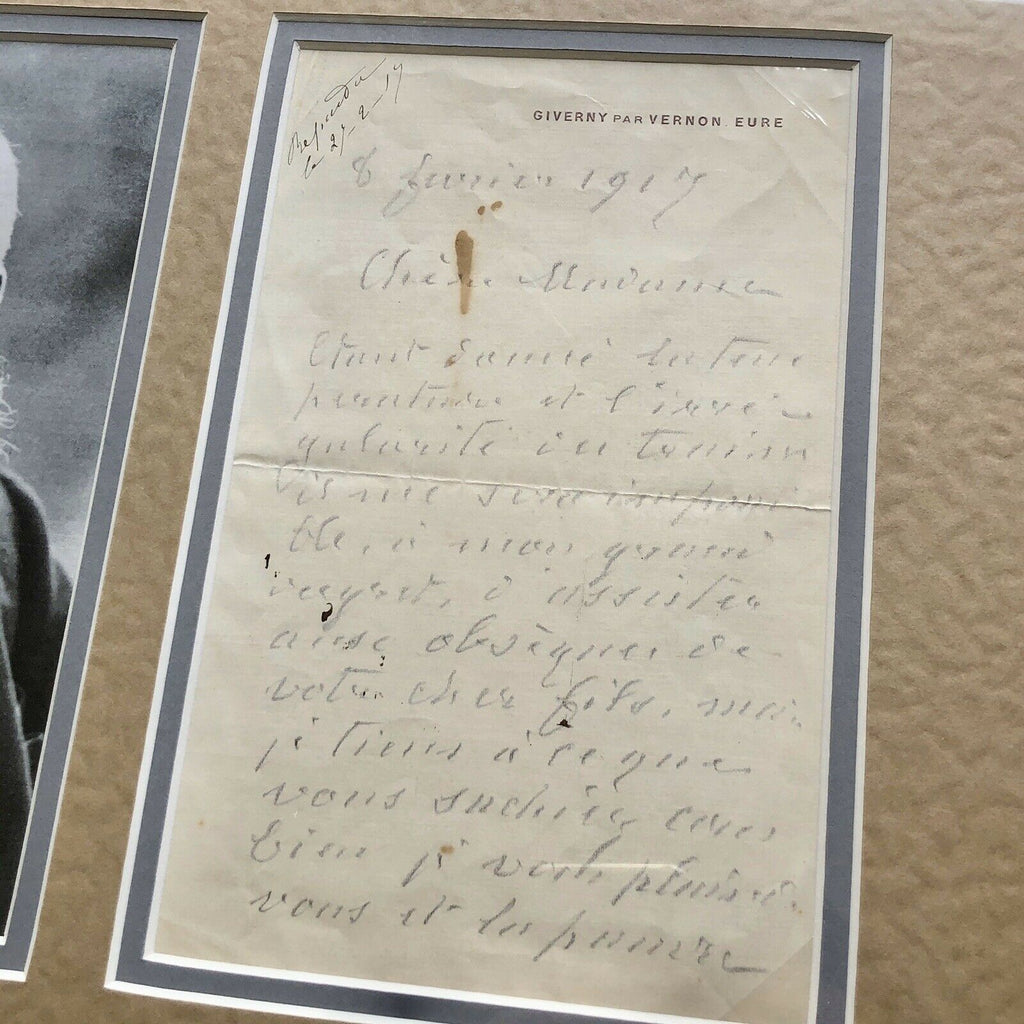 Répondu
le 27-2-17
GIVERNY PAR VERNON. EURE
8 fevrier 1917
Chère Madame
Etant donné la tem
perature et l'irré-
gularité des trains
il me sera impossi
ble, à mon grand
regret, d'assister
aux obsèques de
votre cher fils, mais
je tiens à ce que
vous sachiez com
bien je vous plains
vous et la pauvre